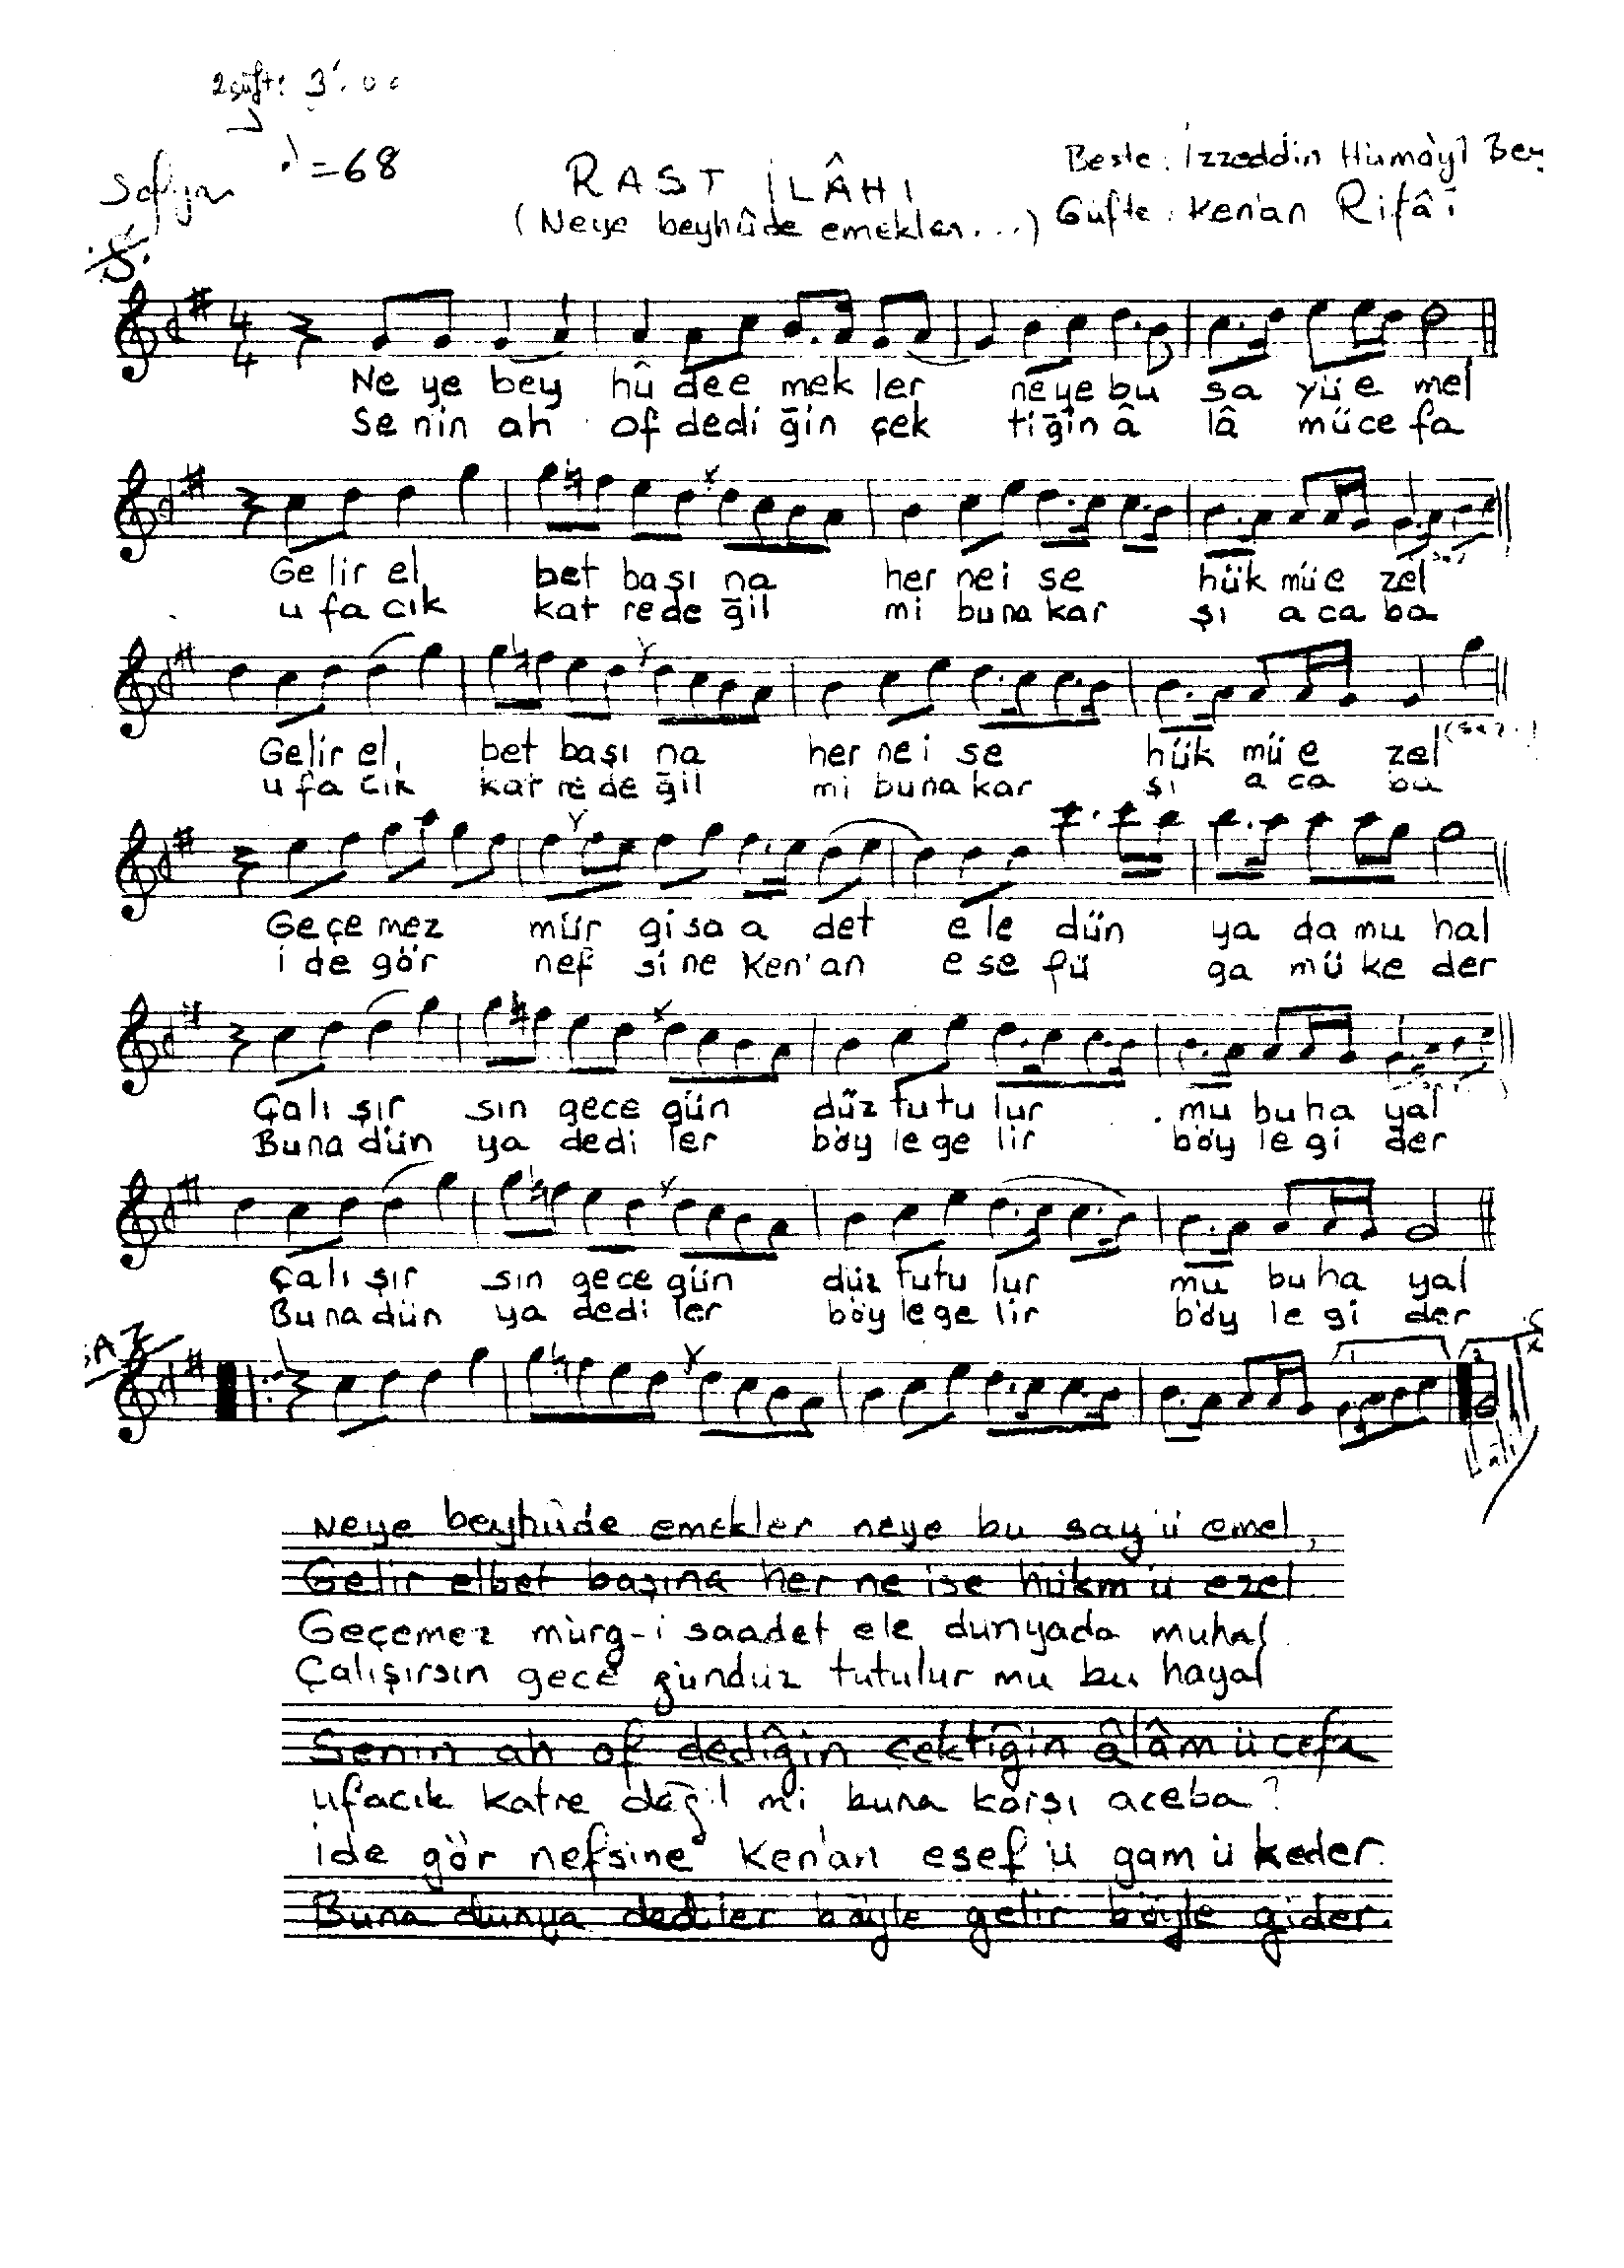 2 güfte 3'.00
Sofyan ♩=68
RAST İLÂHİ
(Neye beyhûde emekler...)
Beste: İzzeddin Hümâyî Bey
Güfte: Ken'an Rifâî
4
4
Ne ye bey hû dee mek ler neye bu sa yü e mel
Se nin ah of dedi ğin çek tiğin â lâ müce fa
Ge lir el bet başı na her nei se hük mü e zel
u fa cık kat rede ğil mi buna kar şı a ca ba
Gelir el bet başı na her nei se hük mü e zel
(saz..)
u fa cık kat re de ğil mi buna kar şı a ca ba
Geçe mez mür gi sa a det e le dün ya da mu hal
i de gör nef si ne Ken'an e se fü ga mü ke der
Çalı şır sın gece gün düz tutu lur mu bu ha yal
Buna dün ya dedi ler böy le ge lir böy le gi der
çalı şır sın gece gün düz tutu lur mu bu ha yal
Bu na dün ya dedi ler böy le ge lir böy le gi der
SAZ
1 2
Neye beyhûde emekler neye bu say ü emel,
Gelir elbet başına her ne ise hükm ü ezel
Geçemez mürg-i saadet ele dünyada muhal
Çalışırsın gece gündüz tutulur mu bu hayal
Senin ah of dediğin çektiğin âlâm ü cefa
ufacık katre değil mi buna karşı aceba?
ide gör nefsine Ken'an esef ü gam ü keder.
Buna dünya dediler böyle gelir böyle gider.